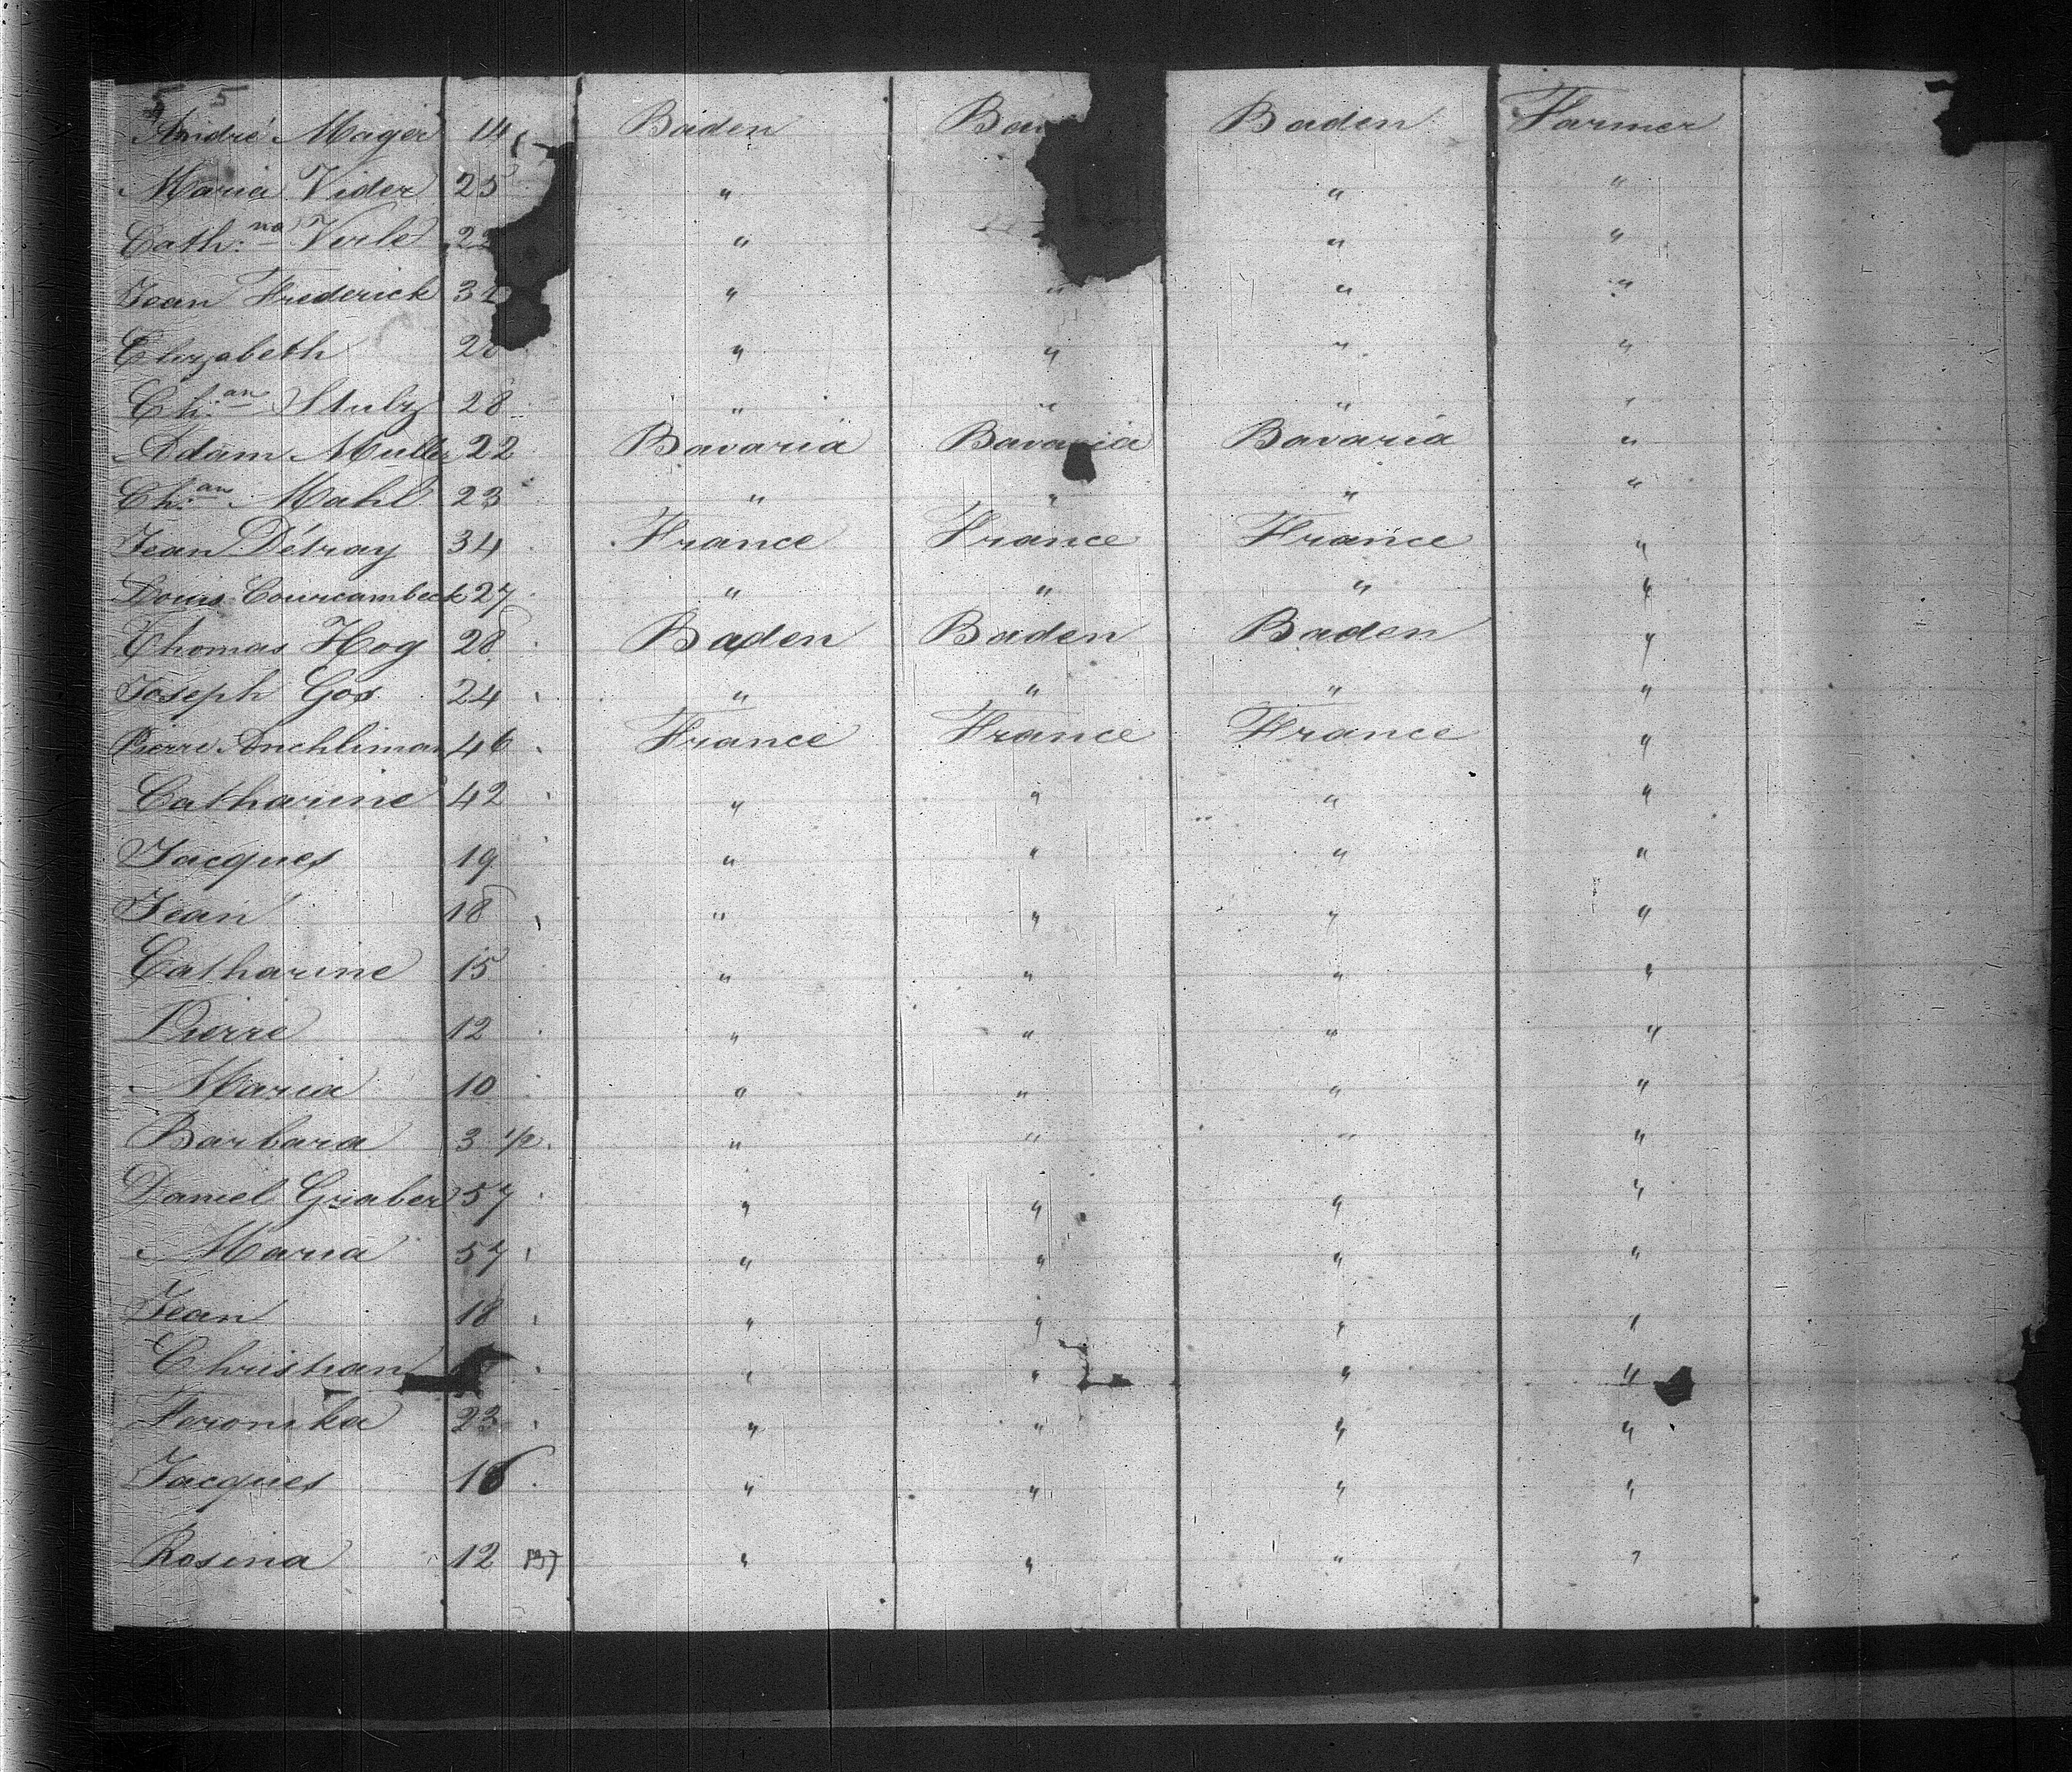 5 5
André Mager 14 Baden Ba Baden Farmer
Maria Vider 25 " " "
Cath:na Verle 2 " " "
Jean Frederick 31 " " " "
Elizabeth 28 " " " "
Ch:an Stulz 28 " " " "
Adam Muller 22 Bavaria Bavaria Bavaria "
Ch:an Mahl 23 " " " "
Jean Détray 34 France France France "
Louis Courcambeck 27 " " " "
Thomas Hog 28 Baden Baden Baden "
Joseph Gos 24 " " " "
Pierre Anchliman 46 France France France "
Catharine 42 " " " "
Jacques 19 " " " "
Jean 18 " " " "
Catharine 15 " " " "
Pierre 12 " " " "
Maria 10 " " " "
Barbara 3 1/2 " " " "
Daniel Graber 57 " " " "
Maria 57 " " " "
Jean 18 " " " "
Christian " " " "
Faronika 23 " " " "
Jacques 16 " " " "
Rosina 12 " " " "